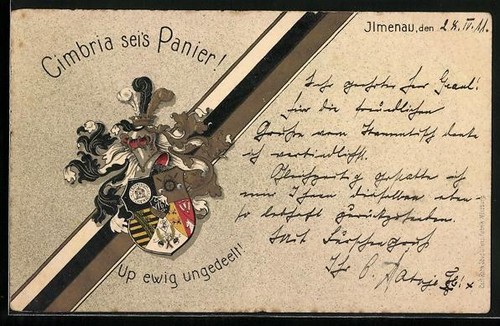 Cimbria sei's Panier!
Jlmenau, den 28.IV.11.
Sehr geehrter Herr Graul!
für die freundlichen
Grüße vom Stammtisch danke
ich verbindlichst.
Gleichzeitig gestatte ich
mir Ihnen dieselben eben-
so lebhaft zurückzusenden.
Mit
Ihr
Up ewig ungedeelt!